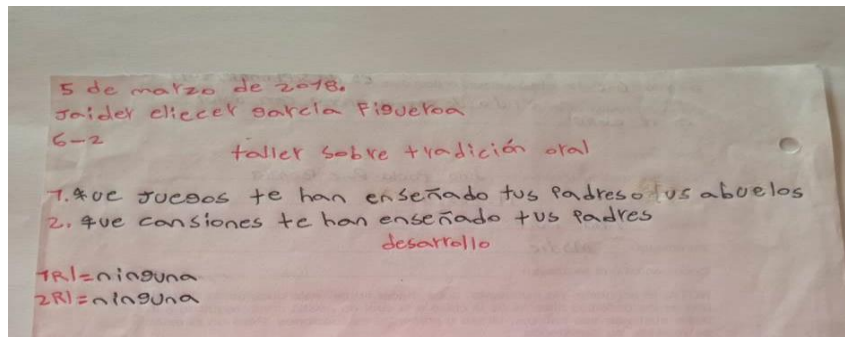 5 de marzo de 2018.
Jaider eliecer garcía Figueroa
6-2
taller sobre tradición oral
1. que juegos te han enseñado tus padres o tus abuelos
2. que cansiones te han enseñado tus padres
desarrollo
1R/=ninguna
2R/=ninguna